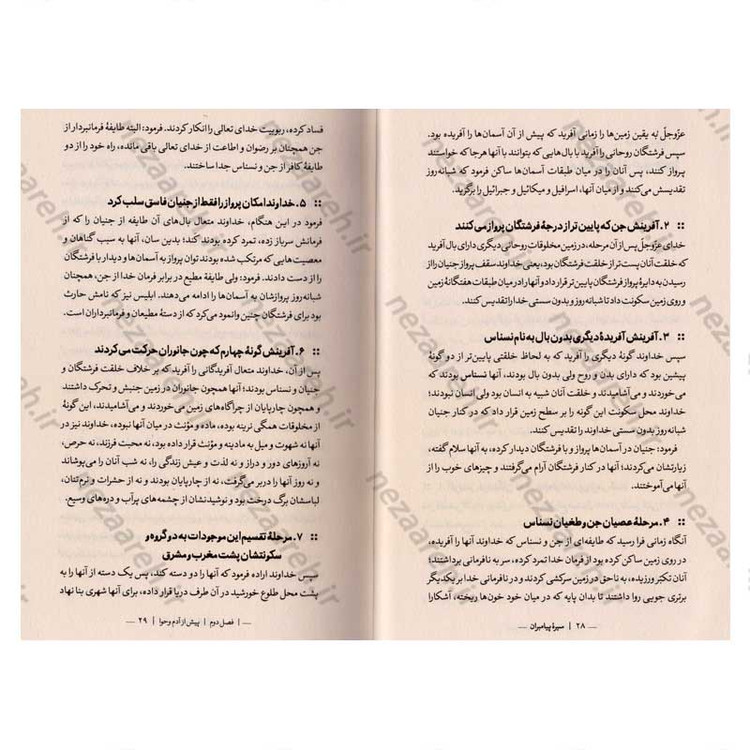 عزّوجلّ به یقین زمین‌ها را زمانی آفرید که پیش از آن آسمان‌ها را آفریده بود.
سپس فرشتگان روحانی را آفرید با بال‌هایی که بتوانند با آنها هرجا که خواستند
پرواز کنند، پس آنان را در میان طبقات آسمان‌ها ساکن فرمود که شبانه‌روز
تقدیسش می‌کنند و از میان آنها، اسرافیل و میکائیل و جبرائیل را برگزید.
:: ۲. آفرینش جن که پایین‌تر از درجهٔ فرشتگان پرواز می‌کنند
خدای عزّوجلّ پس از آن مرحله، در زمین مخلوقات روحانی دیگری دارای بال آفرید
که خلقت آنان پست‌تر از خلقت فرشتگان بود، یعنی خداوند سقف پرواز جنیان را از
رسیدن به دایرهٔ پرواز فرشتگان پایین‌تر قرار داد و آنها را در میان طبقات هفتگانهٔ زمین
و روی زمین سکونت داد تا شبانه‌روز و بدون سستی خدا را تقدیس کنند.
:: ۳. آفرینش آفریدهٔ دیگری بدون بال به نام نسناس
سپس خداوند گونهٔ دیگری را آفرید که به لحاظ خلقتی پایین‌تر از دو گونهٔ
پیشین بود که دارای بدن و روح ولی بدون بال بودند، آنها نسناس بودند که
می‌خوردند و می‌آشامیدند و خلقت آنان شبیه به انسان بود ولی انسان نبودند؛
خداوند محل سکونت این گونه را بر سطح زمین قرار داد که در کنار جنیان
شبانه‌روز بدون سستی خداوند را تقدیس کنند.
فرمود: جنیان در آسمان‌ها پرواز و با فرشتگان دیدار کرده، به آنها سلام گفته،
زیارتشان می‌کردند؛ آنها در کنار فرشتگان آرام می‌گرفتند و چیزهای خوب را از
آنها می‌آموختند.
:: ۴. مرحلهٔ عصیان جن و طغیان نسناس
آنگاه زمانی فرا رسید که طایفه‌ای از جن و نسناس که خداوند آنها را آفریده،
در روی زمین ساکن کرده بود از فرمان خدا تمرد کرده، سر به نافرمانی برداشتند؛
آنان تکبّر ورزیده، به ناحق در زمین سرکشی کردند و در نافرمانی خدا بر یکدیگر
برتری جویی روا داشتند تا بدان پایه که در میان خود خون‌ها ریخته، آشکارا
— ۲۸ | سیرهٔ پیامبران —
فساد کرده، ربوبیت خدای تعالی را انکار کردند. فرمود: البته طایفهٔ فرمانبردار از
جن همچنان بر رضوان و اطاعت از خدای تعالی باقی مانده، راه خود را از دو
طایفهٔ کافر از جن و نسناس جدا ساختند.
:: ۵. خداوند امکان پرواز را فقط از جنیان فاسق سلب کرد
فرمود در این هنگام، خداوند متعال بال‌های آن طایفه از جنیان را که از
فرمانش سرباز زده، تمرد کرده بودند کند؛ بدین سان، آنها به سبب گناهان و
معصیت‌هایی که مرتکب شده بودند توان پرواز به آسمان‌ها و دیدار با فرشتگان
را از دست دادند. فرمود: ولی طایفهٔ مطیع در برابر فرمان خدا از جن، همچنان
شبانه‌روز پروازشان به آسمان‌ها را ادامه می‌دهند. ابلیس نیز که نامش حارث
بود برای فرشتگان چنین وانمود می‌کرد که از دستهٔ مطیعان و فرمانبرداران است.
:: ۶. آفرینش گونهٔ چهارم که چون جانوران حرکت می‌کردند
پس از آن، خداوند متعال آفریدگانی را آفرید که بر خلاف خلقت فرشتگان و
جنیان و نسناس بودند؛ آنها همچون جانوران در زمین جنبش و تحرک داشتند
و همچون چارپایان از چراگاه‌های زمین می‌خوردند و می‌آشامیدند، این گونهٔ
از مخلوقات همگی نرینه بوده، ماده و مؤنث در میان آنها نبوده، خداوند نیز در
آنها نه شهوت و میل به مادینه و مؤنث قرار داده بود، نه محبت فرزند، نه حرص،
نه آرزوهای دور و دراز و نه لذت و عیش زندگی را، نه شب آنان را می‌پوشاند
و نه روز آنها را دربر می‌گرفت، نه از چارپایان بودند و نه از حشرات و نرم‌تنان،
لباسشان برگ درخت بود و نوشیدنشان از چشمه‌های پرآب و دره‌های وسیع.
:: ۷. مرحلهٔ تقسیم این موجودات به دو گروه و
سکونتشان پشت مغرب و مشرق
سپس خداوند اراده فرمود که آنها را دو دسته کند، پس یک دسته از آنها را به
پشت محل طلوع خورشید در آن طرف دریا قرار داده، برای آنها شهری بنا نهاد
— | فصل دوم | پیش از آدم و حوا | ۲۹ —
nezaareh.ir